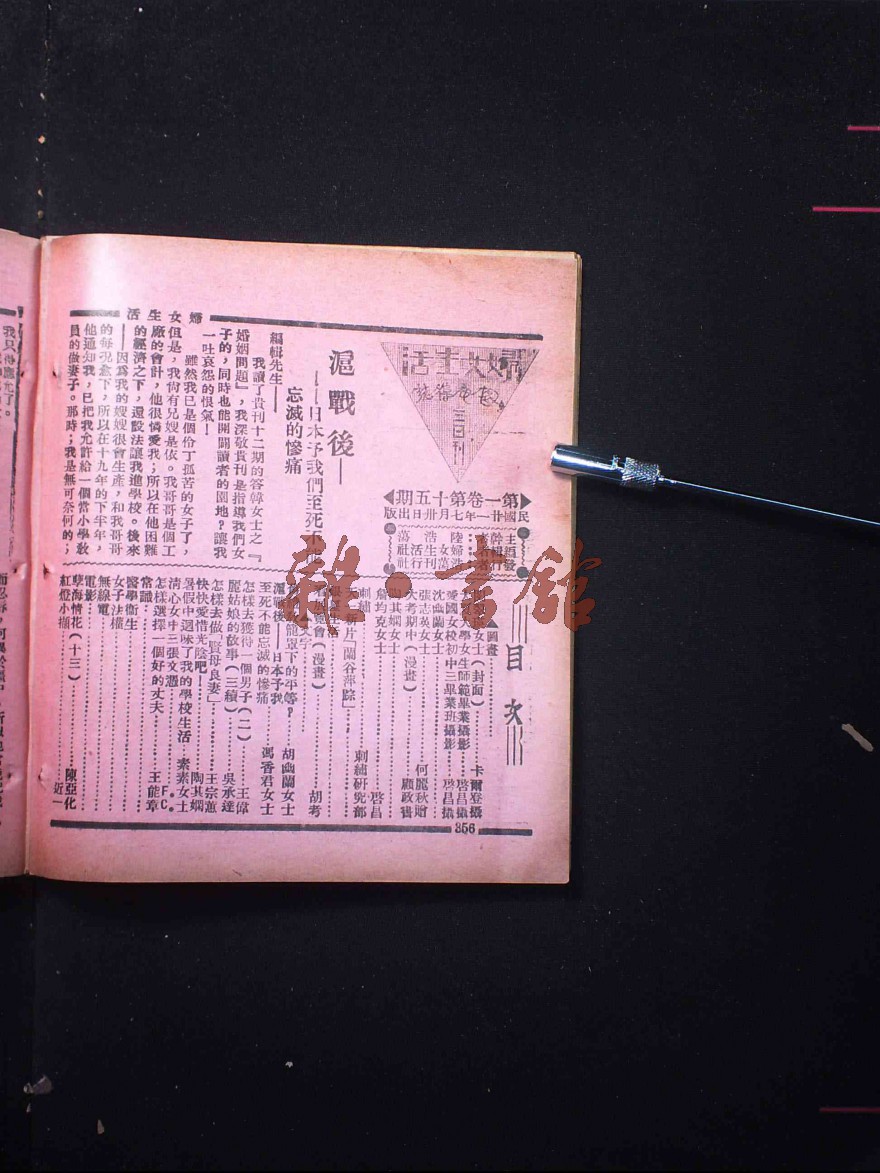 婦女生活
三日刊
第一卷第十五期
民國廿一年七月卅日出版
目次
▲圖畫
卡爾登攝
啓昌攝
愛國女校初中三畢業班攝影……啓昌攝
沈幽蘭女士
張志英女士……何麗秋贈
大考期中(漫畫)……顧政書
陶其嫻女士
詹均克女士……啓昌
刺繡……刺繡研究部
新片「蘭谷萍踪」
覽會(漫畫)……胡考
文字
籠罩下的平等?……胡幽蘭女士
滬戰後——日本予我
至死不能忘滅的慘痛……馮香君女士
怎樣去獲得一個男子(二)……王偉
麗姑娘的故事(三續)……吳承達
怎樣去做「賢母良妻」……王宗蕙
快快愛惜光陰吧!……陶其嫻
暑假中迴味了我的學校生活……素素女士
清心女中三張文憑……F.C.
怎樣選擇一個好的丈夫……王能章
常識
醫學衛生
女子法權
無線電
電影
孽海情花(十三)……陳亞化
紅燈小擷……近一
滬戰後——
——日本予我們至死不能
忘滅的慘痛
編輯先生——
我讀了貴刊十二期的答韓女士之『
婚姻問題』,我深敬貴刊是指導我們女
子的,同時也能開闢讀者的園地?讓我
一吐哀怨的恨氣!
雖然我已是個伶丁孤苦的女子了,
但是,我尚有兄嫂是依。我哥哥是個工
廠的會計,他很憐愛我;所以在他困難
的經濟之下,還設法讓我進學校。後來
——因爲我的嫂嫂很會生產,和我哥哥
的每況愈下,所以在十九年的下半年,
他通知我,已把我允許給一個當小學教
員的做妻子。那時;我是無可奈何的;
婦女生活
356
我只得應允了。
雜·書館